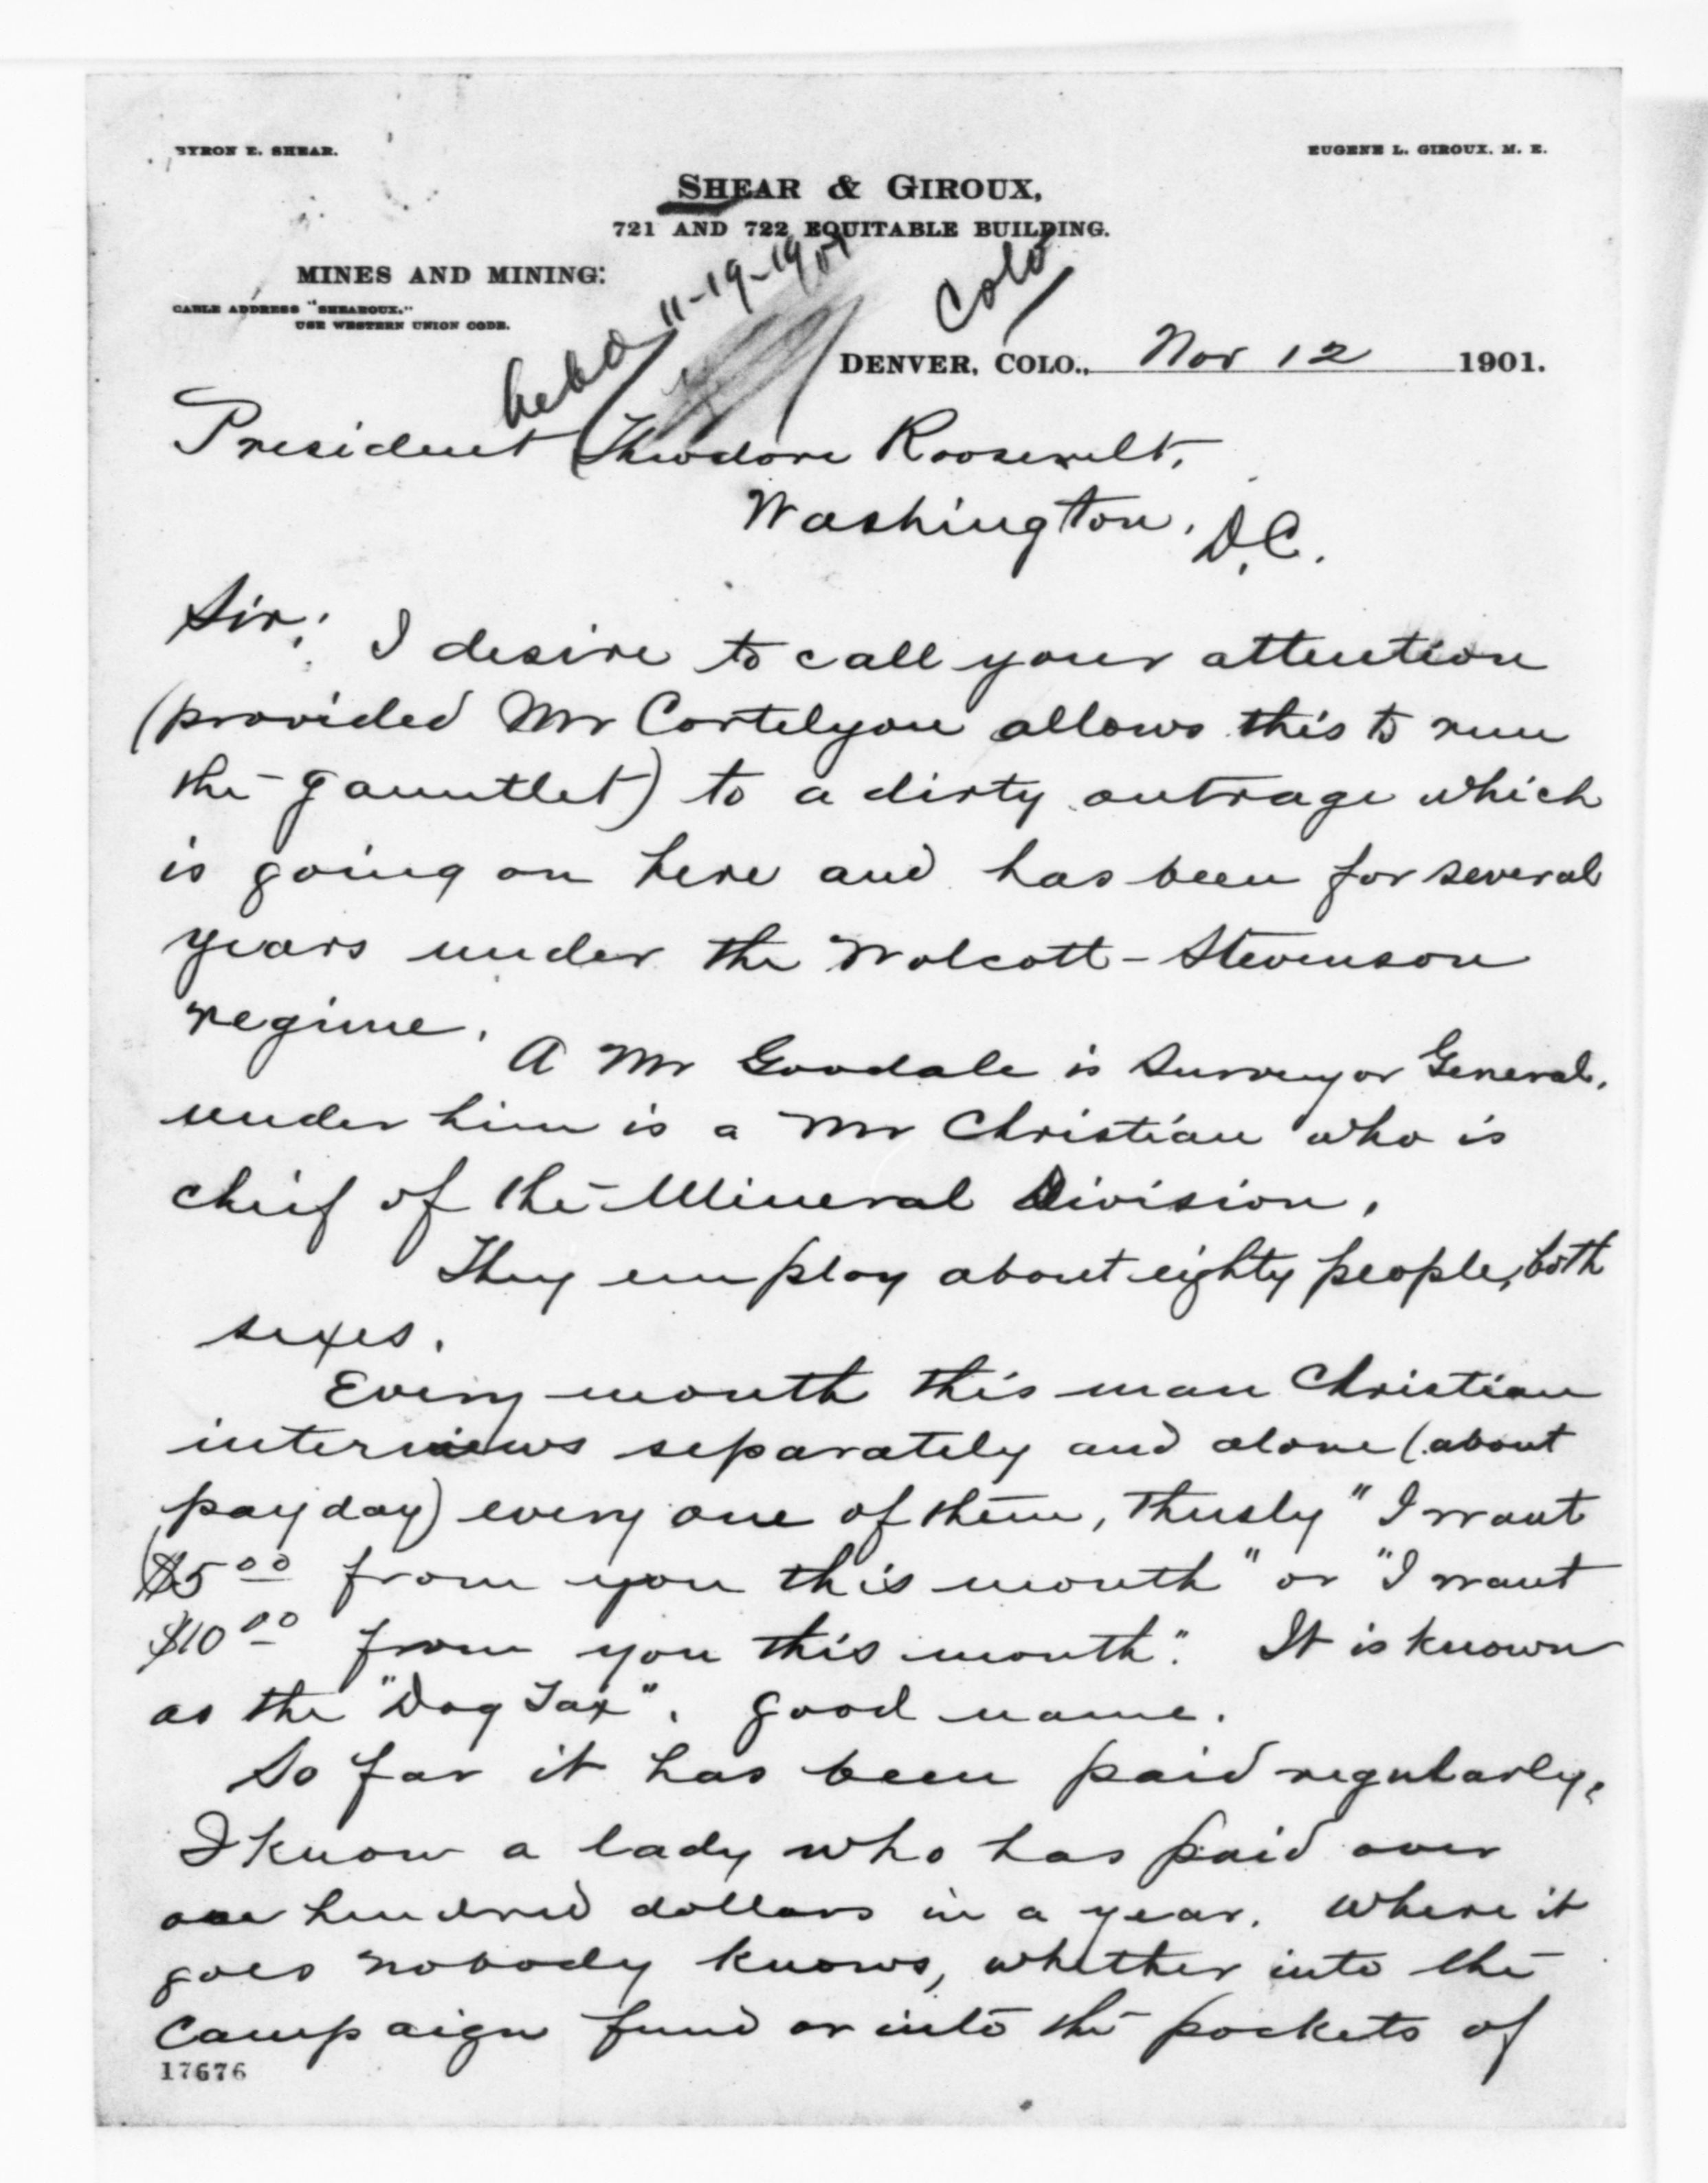 BYRON E. SHEAR.
EUGENE L. GIROUX. M. E.
SHEAR & GIROUX,
721 AND 722 EQUITABLE BUILDING.
MINES AND MINING:
CABLE ADDRESS "SHEAROUX."
USE WESTERN UNION CODE.
11-19-1901
Colo
DENVER, COLO., Nov 12 1901.
President Theodore Roosevelt,
Washington, D.C.
Sir: I desire to call your attention
(provided Mr Cortelyou allows this to run
the gauntlet) to a dirty outrage which
is going on here and has been for several
years under the Wolcott-Stevenson
regime.
A Mr Goodale is Surveyor General,
under him is a Mr Christian who is
chief of the Mineral Division.
They employ about eighty people, both
sexes.
Every month this man Christian
interviews separately and alone (about
pay day) every one of them, thusly "I want
$5 00 from you this month" or "I want
$10 00 from you this month". It is known
as the "Dog Tax". Good name.
So far it has been paid regularly.
I know a lady who has paid over
one hundred dollars in a year. Where it
goes nobody knows, whether into the
campaign fund or into the pockets of
17676